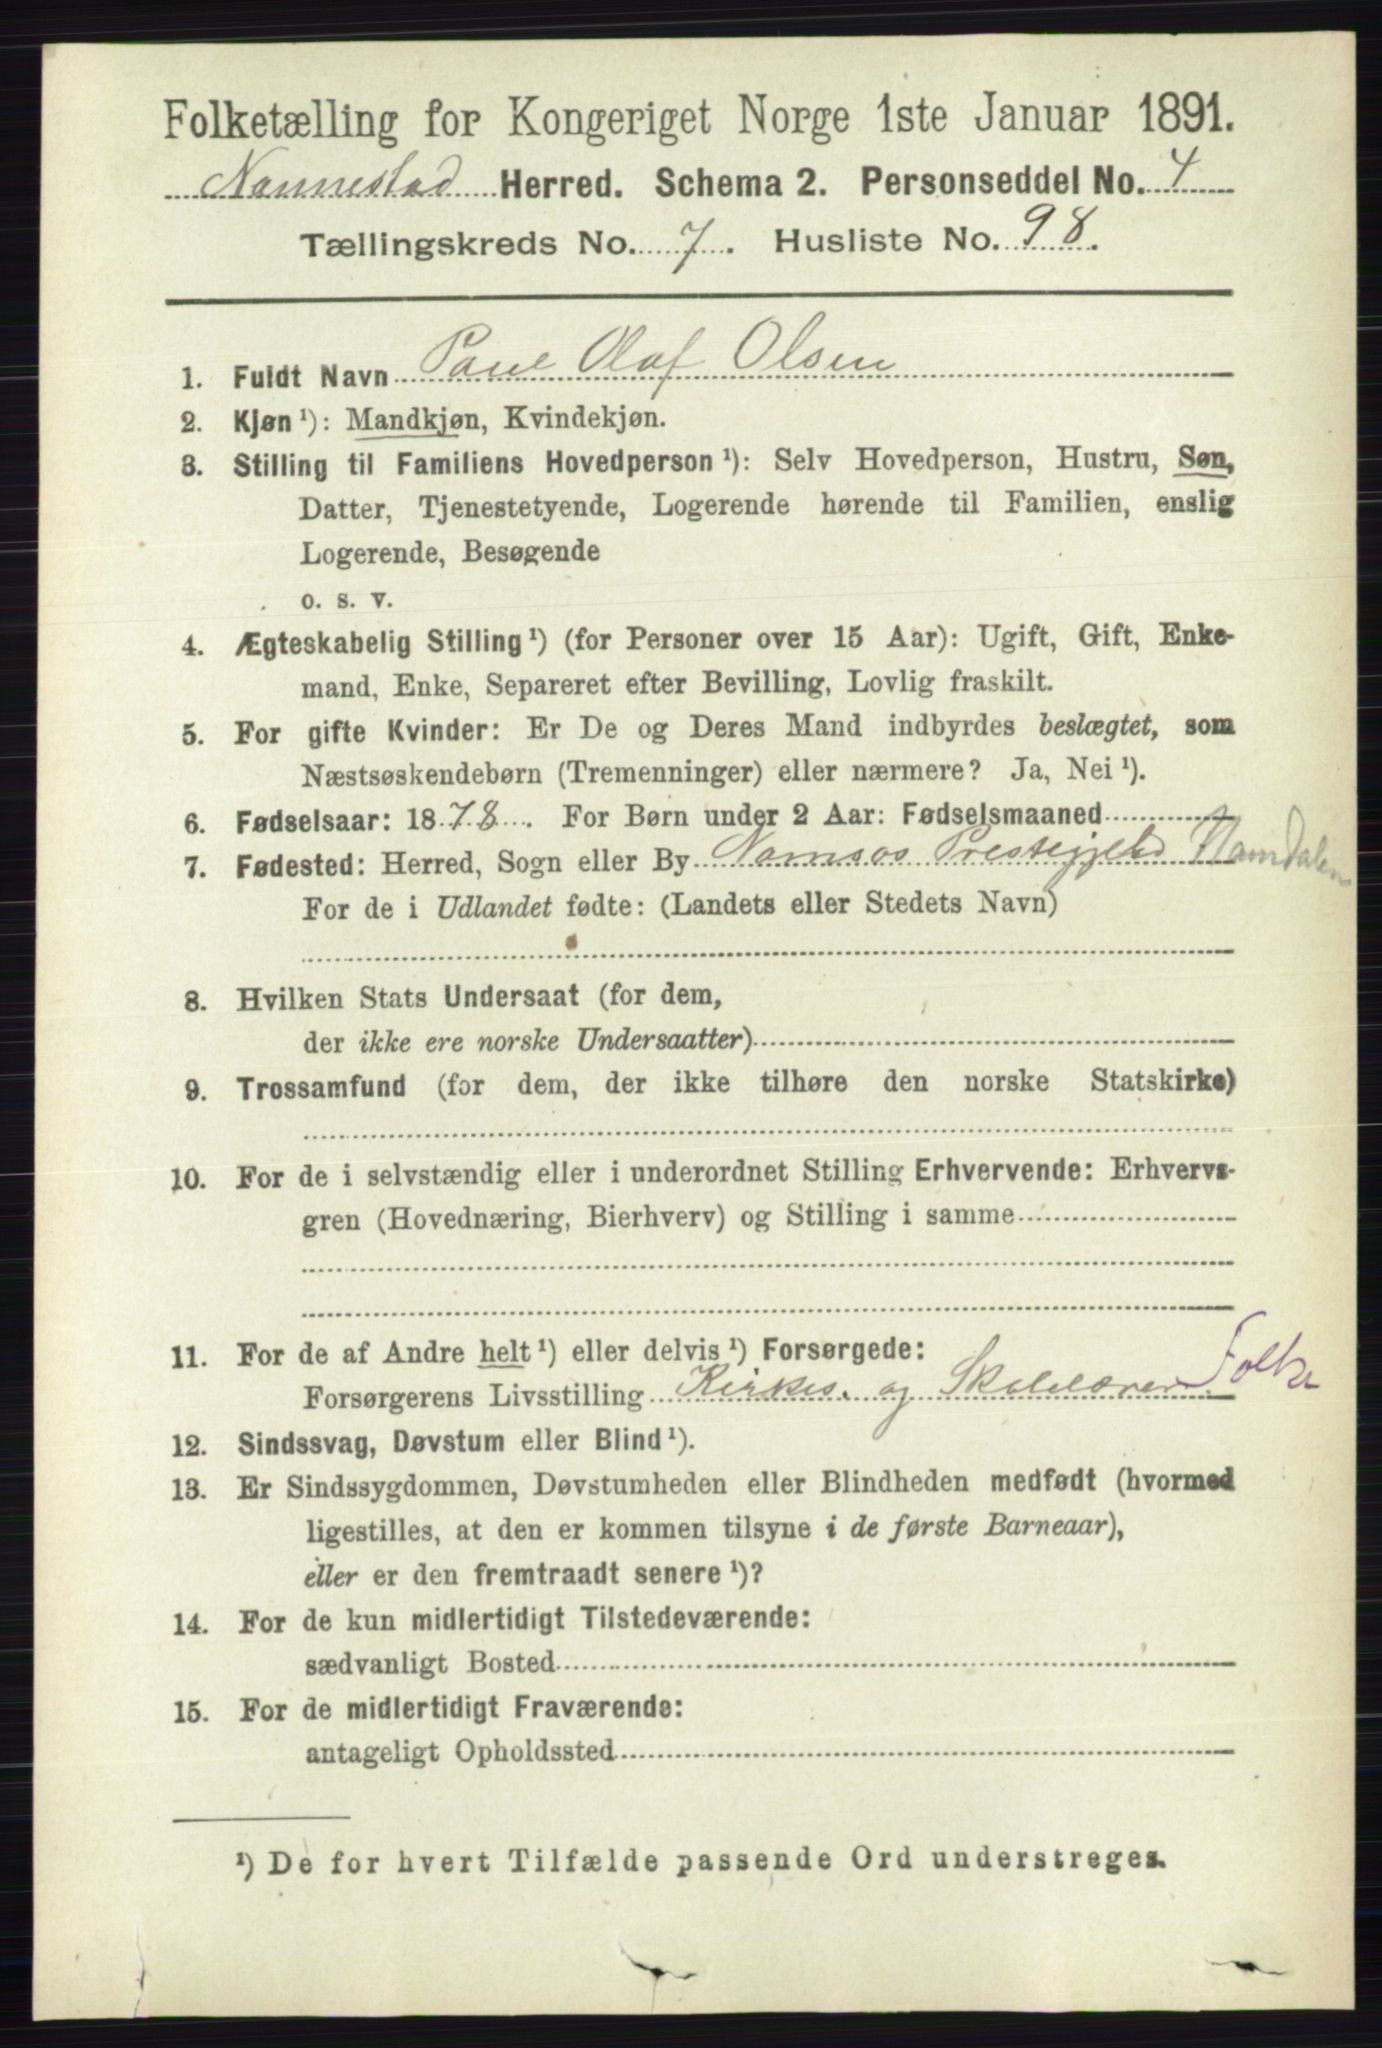 Folketælling for Kongeriget Norge 1ste Januar 1891.
Nannestad Herred. Schema 2. Personseddel No. 4
Tællingskreds No. 7. Husliste No. 98.
1. Fuldt Navn Paul Olaf Olsen
2. Kjøn ¹): Mandkjøn, Kvindekjøn.
3. Stilling til Familiens Hovedperson ¹): Selv Hovedperson, Hustru, Søn,
Datter, Tjenestetyende, Logerende hørende til Familien, enslig
Logerende, Besøgende
o. s. v.
4. Ægteskabelig Stilling ¹) (for Personer over 15 Aar): Ugift, Gift, Enke-
mand, Enke, Separeret efter Bevilling, Lovlig fraskilt.
5. For gifte Kvinder: Er De og Deres Mand indbyrdes beslægtet, som
Næstsøskendebørn (Tremenninger) eller nærmere? Ja, Nei ¹).
6. Fødselsaar: 1878. For Børn under 2 Aar: Fødselsmaaned
7. Fødested: Herred, Sogn eller By Namsos Prestegjeld Namdalen
For de i Udlandet fødte: (Landets eller Stedets Navn)
8. Hvilken Stats Undersaat (for dem,
der ikke ere norske Undersaatter)
9. Trossamfund (for dem, der ikke tilhøre den norske Statskirke)
10. For de i selvstændig eller i underordnet Stilling Erhvervende: Erhvervs-
gren (Hovednæring, Bierhverv) og Stilling i samme
11. For de af Andre helt ¹) eller delvis ¹) Forsørgede:
Forsørgerens Livsstilling Kirkes. og Skolelærer Folke
12. Sindssvag, Døvstum eller Blind ¹).
13. Er Sindssygdommen, Døvstumheden eller Blindheden medfødt (hvormed
ligestilles, at den er kommen tilsyne i de første Barneaar),
eller er den fremtraadt senere ¹)?
14. For de kun midlertidigt Tilstedeværende:
sædvanligt Bosted
15. For de midlertidigt Fraværende:
antageligt Opholdssted
¹) De for hvert Tilfælde passende Ord understreges.